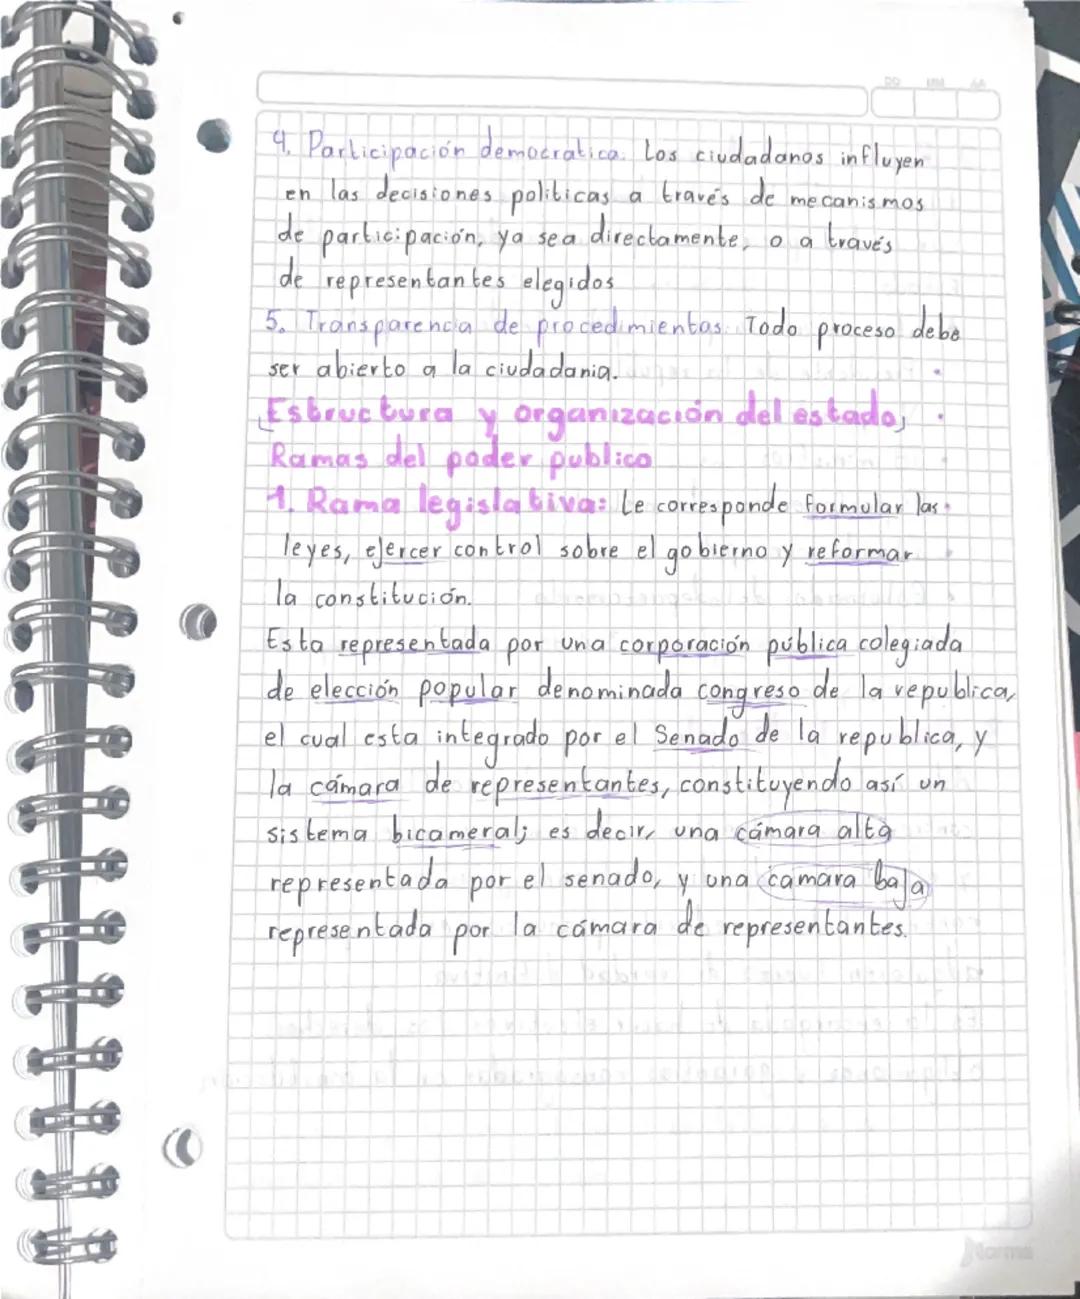 DD MM AA
4. Participación democratica. Los ciudadanos influyen
en las decisiones politicas a través de mecanismos
de participación, ya sea directamente, o a través
de representantes elegidos
5. Transparencia de procedimientos. Todo proceso debe
ser abierto a la ciudadania.
Estructura y organización del estado,
Ramas del poder publico
1. Rama legislativa: Le corresponde formular las
leyes, ejercer control sobre el gobierno y reformar
la constitución.
Esta representada por una corporación pública colegiada
de elección popular denominada congreso de la republica,
el cual esta integrado por el Senado de la republica, y
la cámara de representantes, constituyendo así un
sistema bicameral; es decir, una cámara alta
representada por el senado, y una camara baja
representada por la cámara de representantes.
Norma